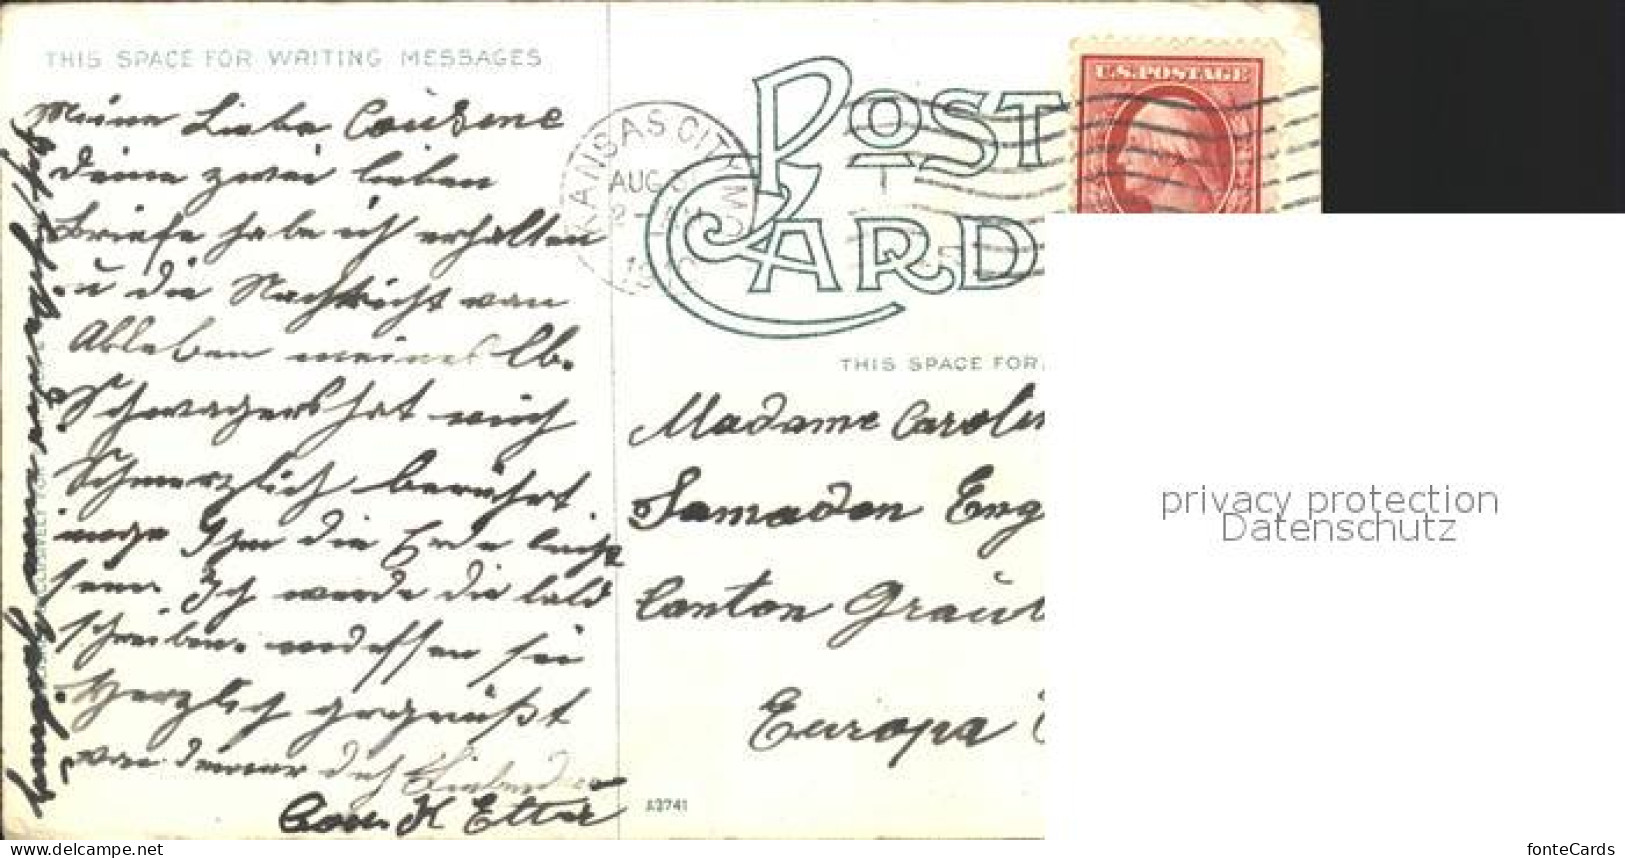 THIS SPACE FOR WRITING MESSAGES
Meine Liebe Cousene
deine zwei lieben
Briefe habe ich erhalten
u die Nachricht von
Ableben meines lb.
Schwagers hat mich
Schmerzlich berührt
möge Ihm die Erde leicht
sein. Ich werde dir bald
schreiben. indessen sei
Herzlich gegrüßt
von deiner dich liebenden
Cous. K Etter
KANSAS CITY MO
AUG 31
1910
POST CARD
U.S. POSTAGE
THIS SPACE FOR
Madame Carolin
Samaden Eng
Canton Grau
Europa
A2741
privacy protection
Datenschutz
www.delcampe.net
fonteCards